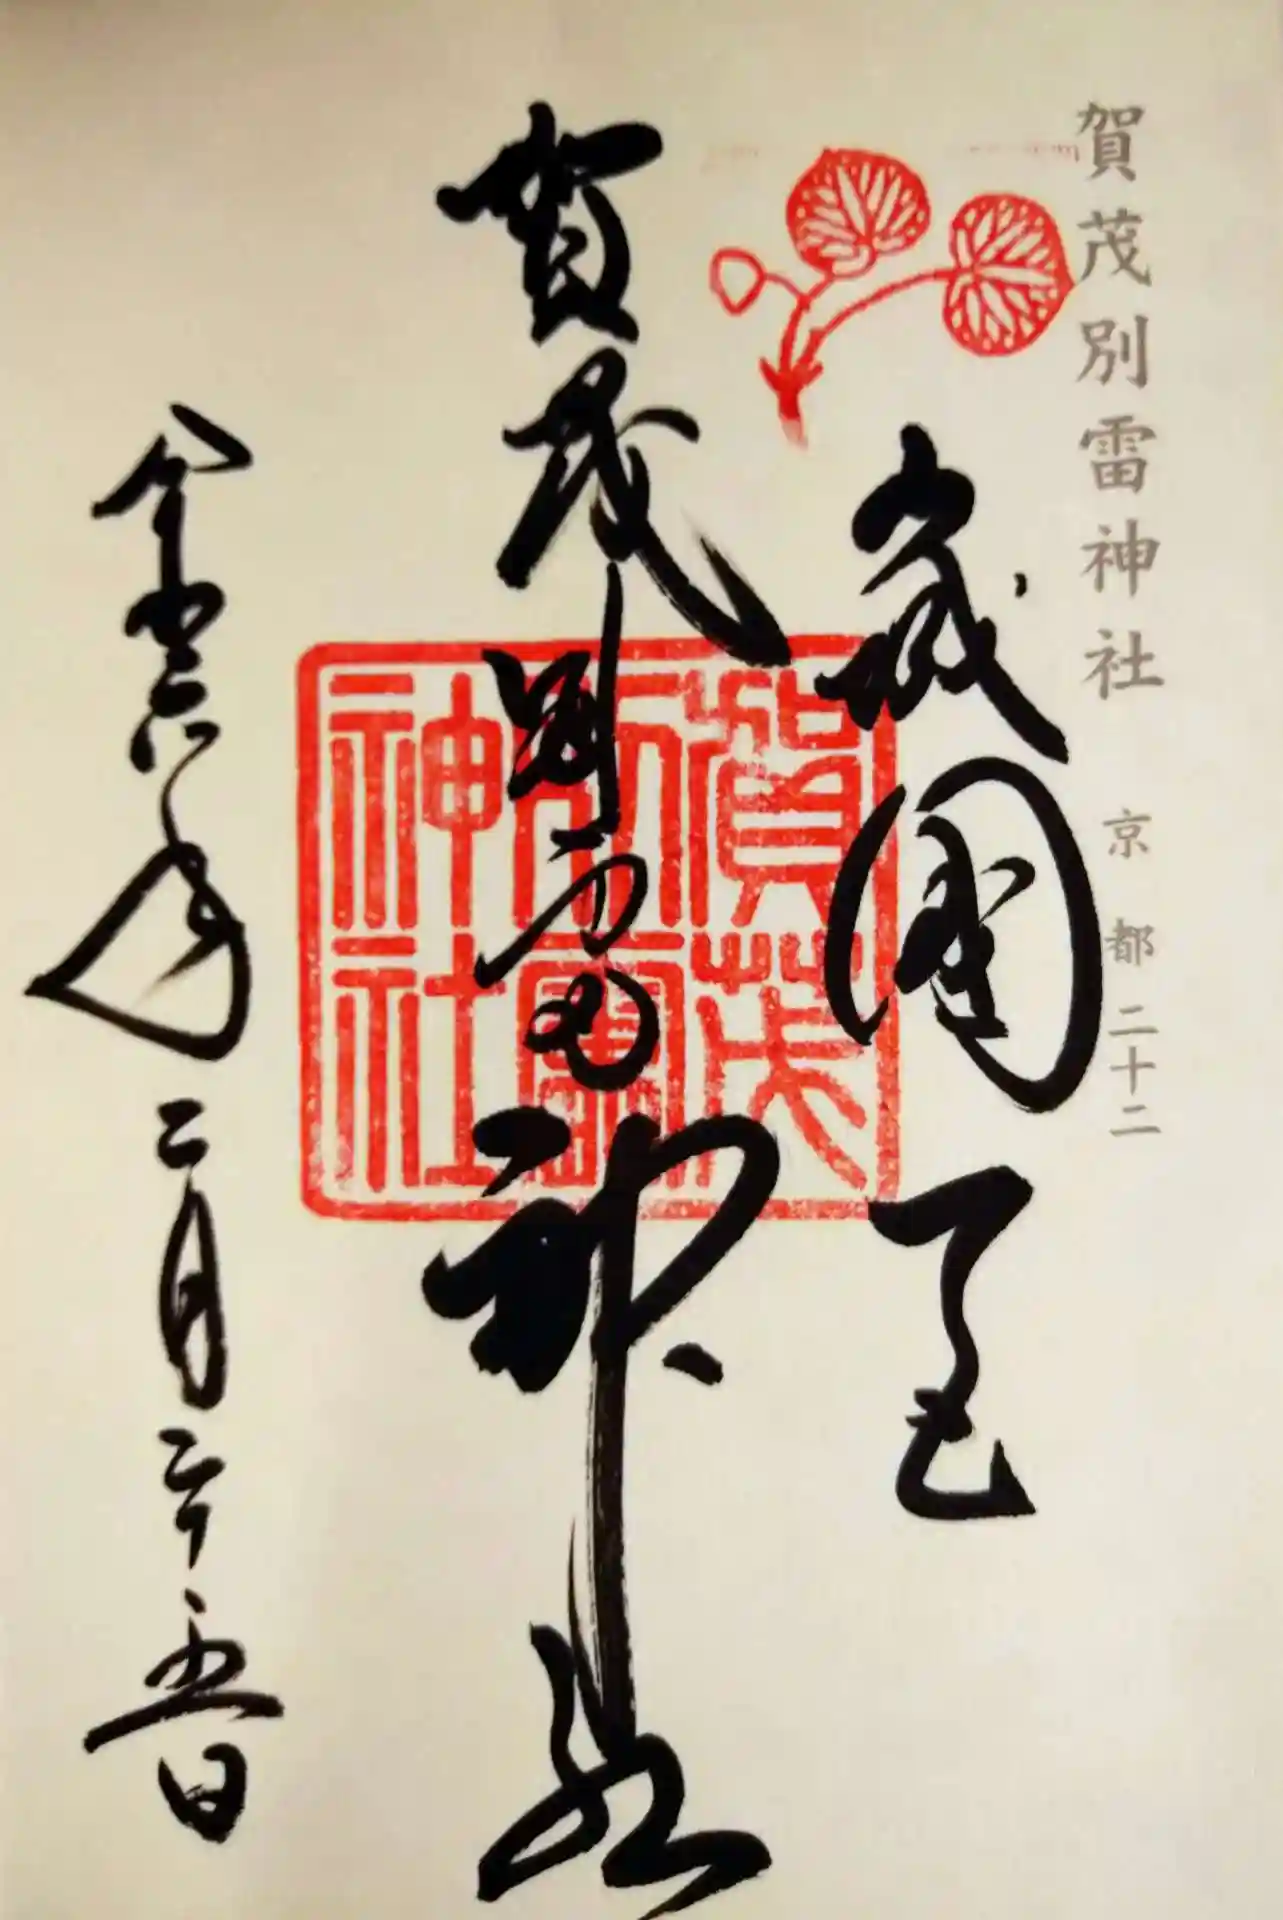 賀茂別雷神社 京都二十二
山城國一宮
賀茂別雷神社
賀茂
別雷
神社
令和六年二月二十五日